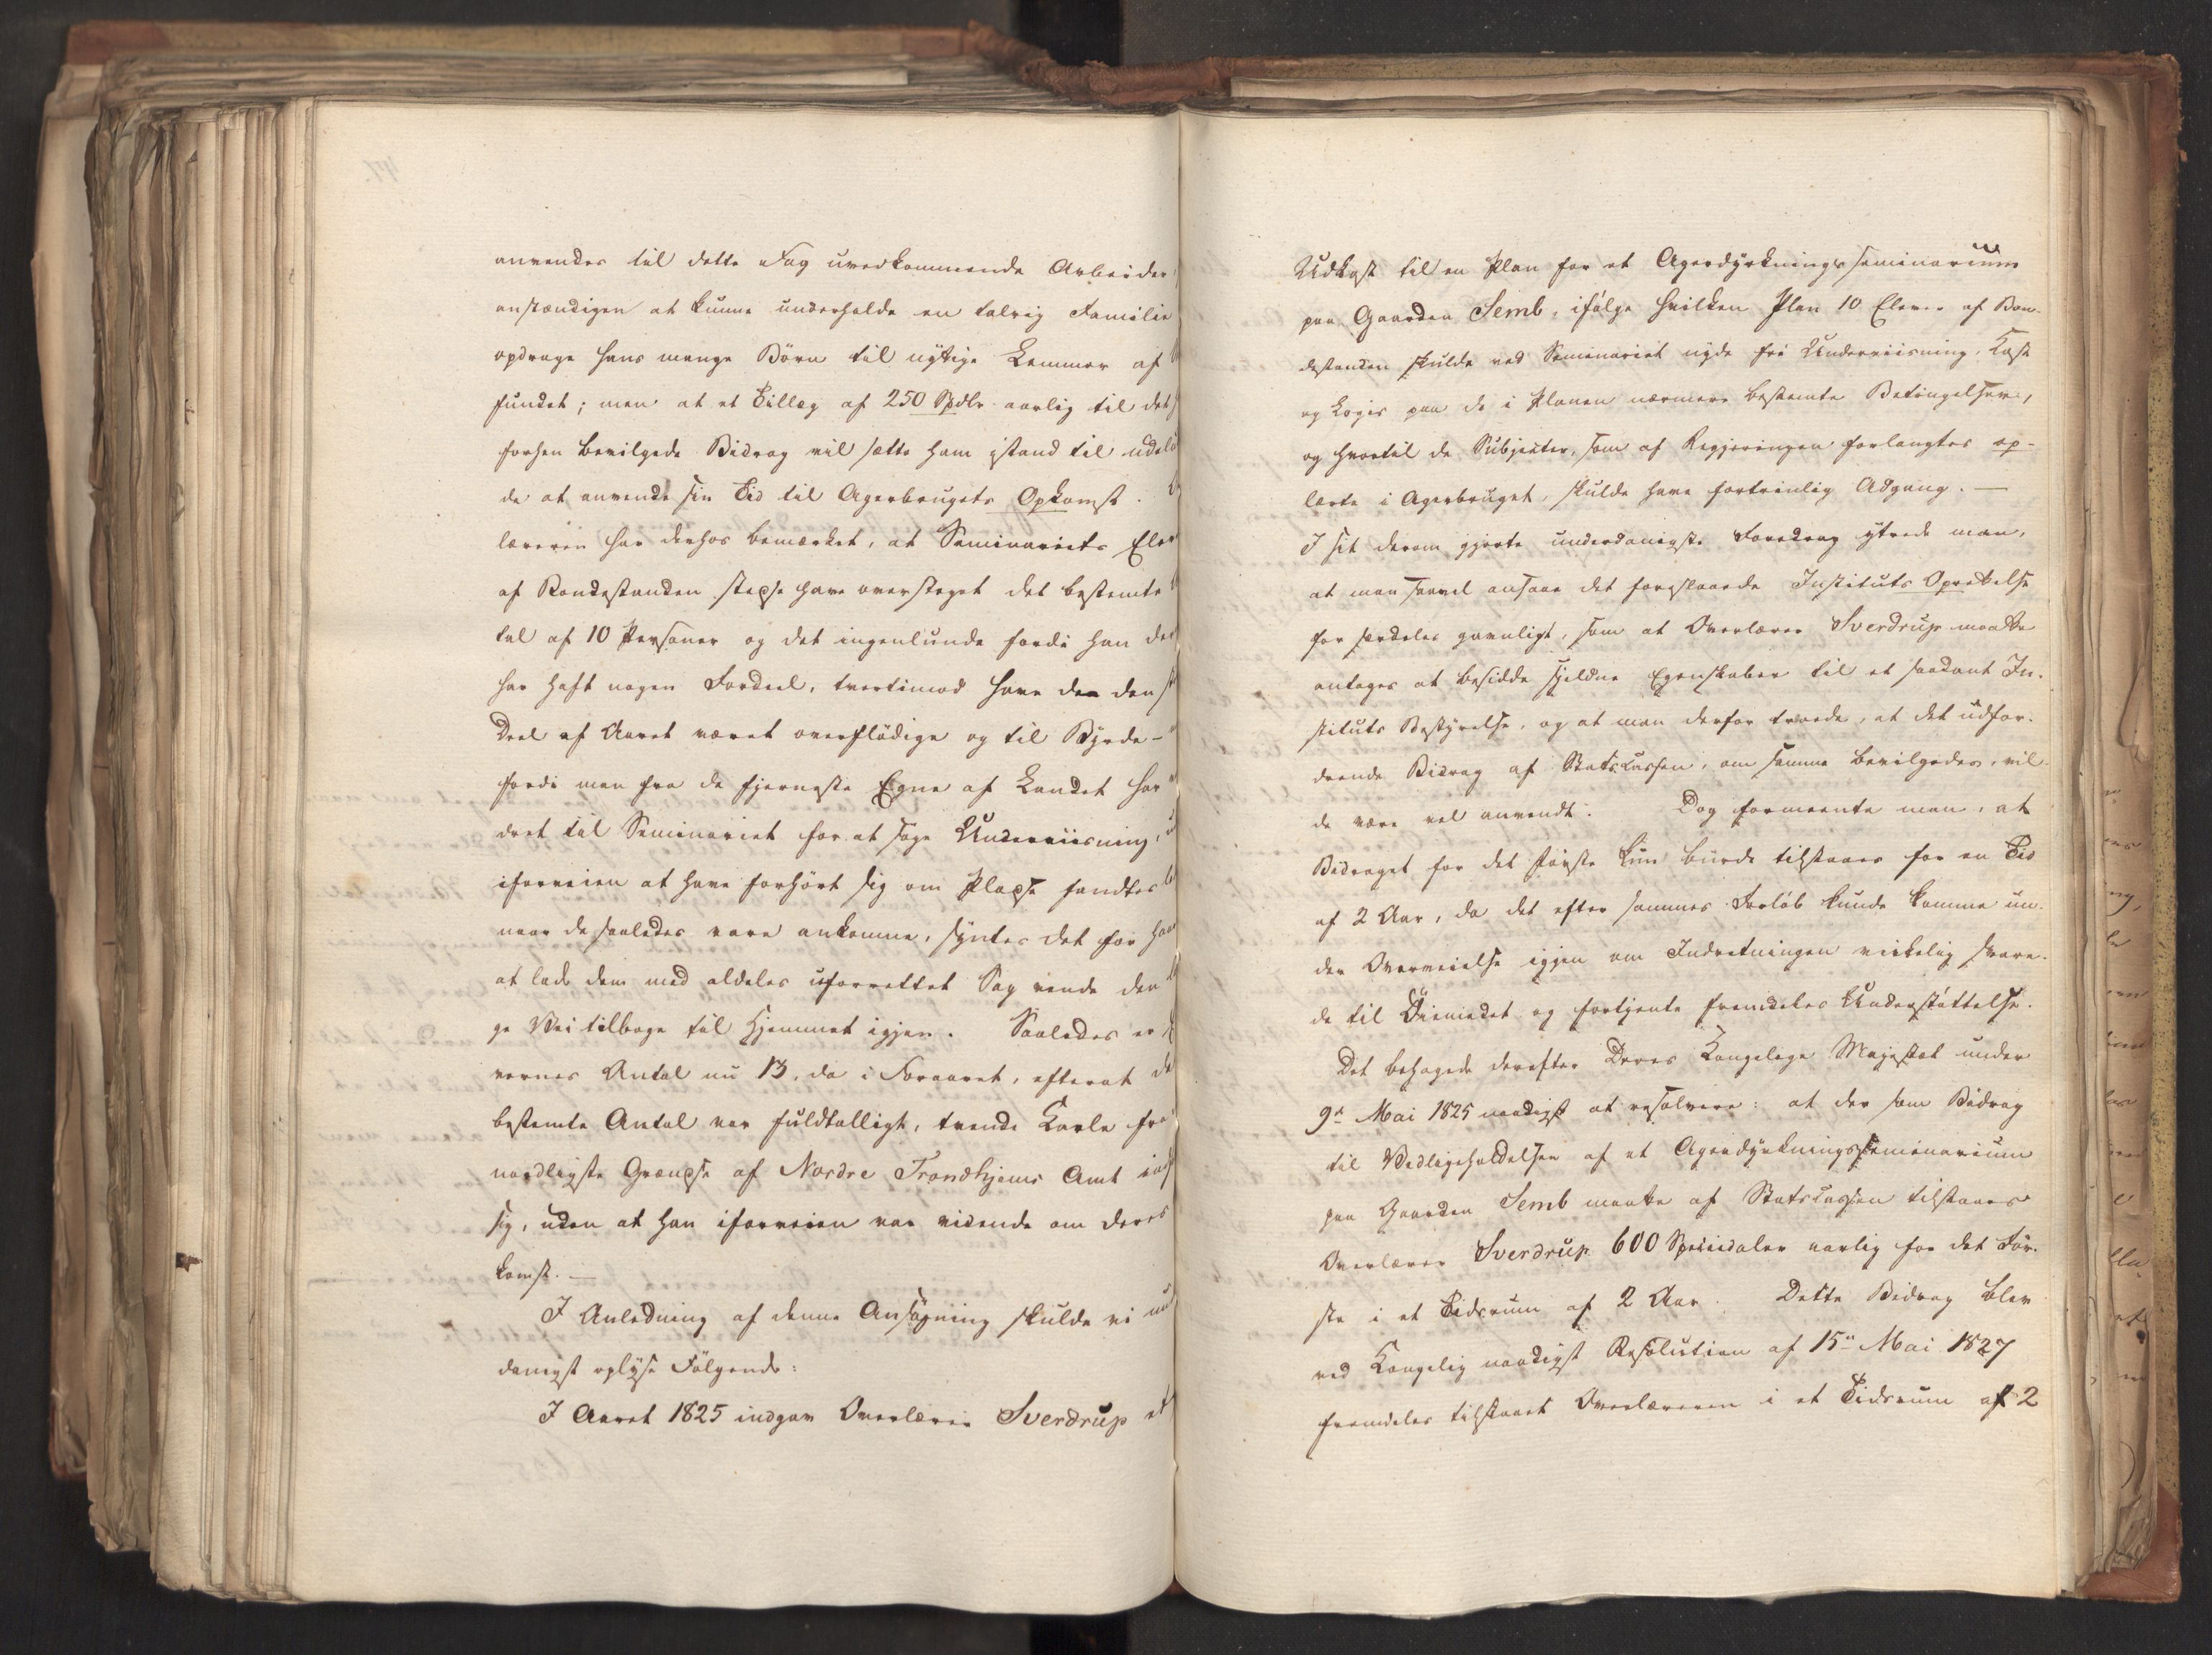 anvendes til dette Fag uvedkommende Arbeider
anstændigen at kunne underholde en talrig Familie
opdrage hans mange Børn til nyttige Lemmer af
fundet; men at et Tillæg af 250 Spdlr aarlig til det
forhen bevilgede Bidrag vil sætte ham istand til udelu
de at anvende sin Tid til Agerbrugets Opkomst.
læreren har derhos bemærket, at Seminariets Elev
af Bondestanden stedse have oversteget det bestemte
tal af 10 Personer og det ingenlunde fordi han der
har haft nogen Fordeel, tvertimod have de den
Deel af Aaret været overflødige og til Byrde –
fordi man fra de fjerneste Egne af Landet har
dret til Seminariet for at søge Underviisning,
iforveien at have forhørt sig om Pladse fandtes
naar de saaledes vare ankomne, syntes det for haa
at lade dem med aldeles uforrettet Sag vende den
ge Vei tilbage til Hjemmet igjen. Saaledes er
vernes Antal nu 13, da i Foraaret, efterat de
bestemte Antal var fuldtalligt, tvende Karle fra
nordligste Grændse af Nordre Trondhjems Amt ind
sig, uden at han iforveien var vidende om deres
komst. —
I Anledning af denne Ansøgning skulde vi un
danigst oplyse Følgende:
I Aaret 1825 indgav Overlærer Sverdrup et
Udkast til en Plan for et Agerdyrkningsseminarium
paa Gaarden Semb, ifølge hvilken Plan 10 Elever af Bon-
destanden skulde ved Seminariet nyde fri Underviisning, Kost
og Logis paa de i Planen nærmere bestemte Betingelser,
og hvortil de Subjecter, som af Regjeringen forlangtes op-
lærte i Agerbruget, skulde have fortrinlig Adgang. —
I sit derom gjorte underdanigste Foredrag ytrede man,
at man saavel ansaae det foreslaaede Instituts Oprettelse
for særdeles gavnligt, som at Overlærer Sverdrup maatte
antages at besidde sjeldne Egenskaber til et saadant In-
stituts Bestyrelse, og at man derfor troede, at det udfor-
drende Bidrag af Statskassen, om samme bevilgedes, vil-
de være vel anvendt. Dog formeente man, at
Bidraget for det første kun burde tilstaaes for en Tid
af 2 Aar, da det efter sammes Forløb kunde komme un-
der Overveielse igjen om Indretningen virkelig svare-
de til Øiemedet og fortjente fremdeles Understøttelse.
Det behagede derefter Deres Kongelige Majestæt under
9de Mai 1825 naadigst at resolvere: at der som Bidrag
til Vedligeholdelsen af et Agerdyrkningsseminarium
paa Gaarden Semb maatte af Statskassen tilstaaes
Overlærer Sverdrup 600 Speciedaler aarlig for det før-
ste i et Tidsrum af 2 Aar. Dette Bidrag blev
ved Kongelig naadigst Resolution af 15de Mai 1827
fremdeles tilstaaet Overlæreren i et Tidsrum af 2